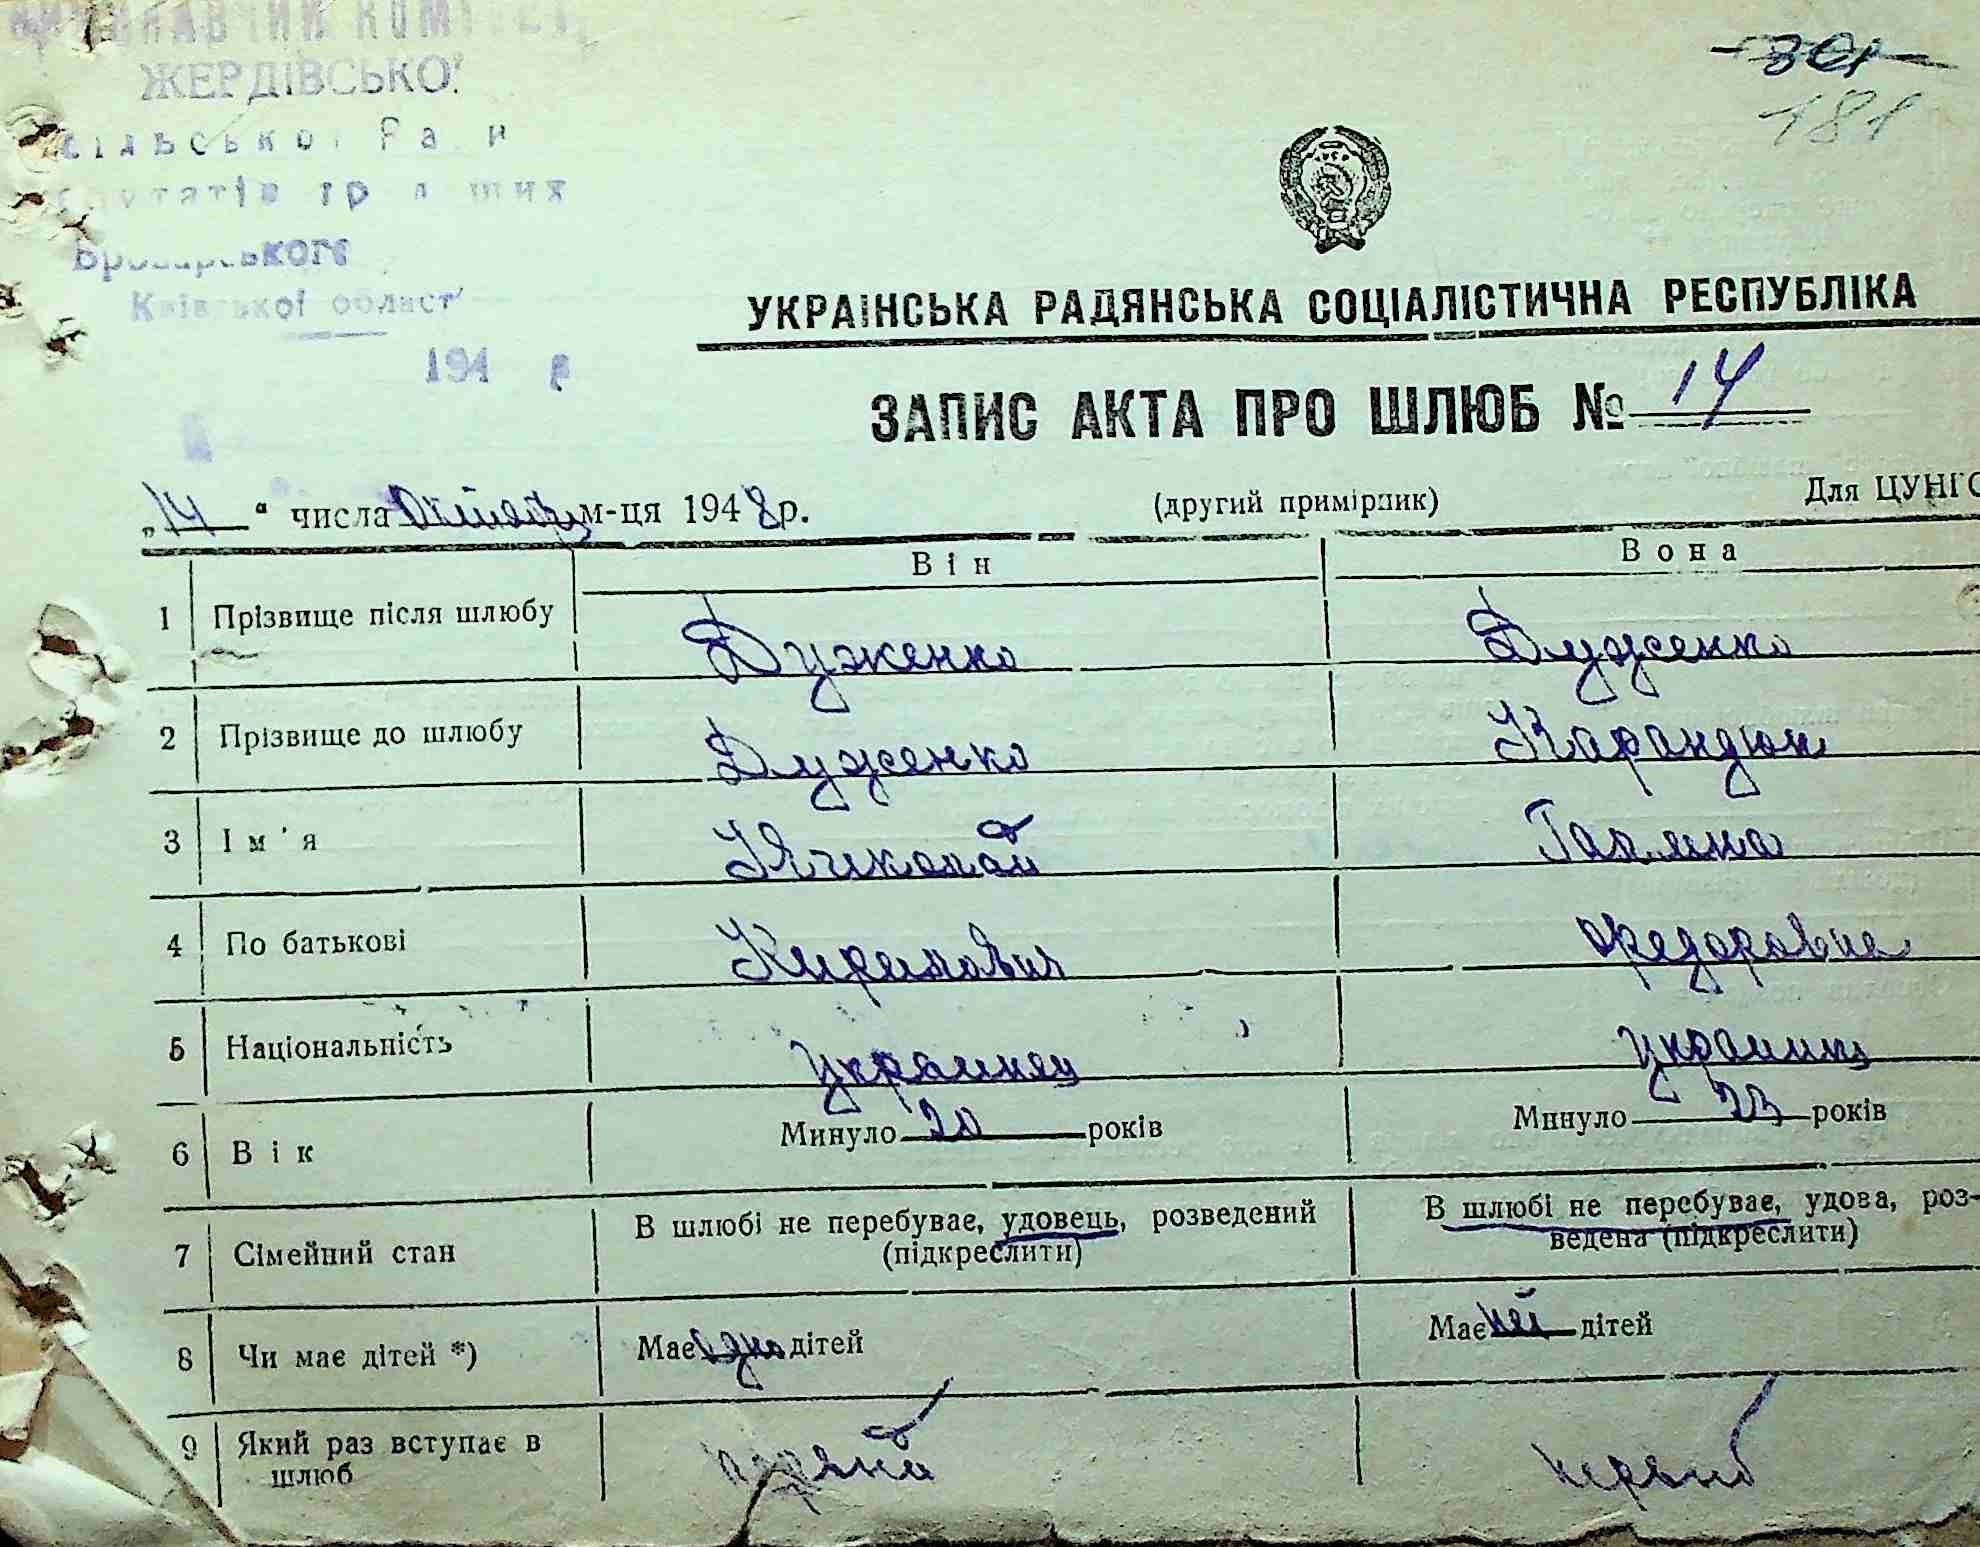 ВИКОНАВЧИЙ КОМІТЕТ
ЖЕРДІВСЬКОЇ
сільської Ради
депутатів трудящих
Броварського
Київської області
194 р
301
181
УКРАЇНСЬКА РАДЯНСЬКА СОЦІАЛІСТИЧНА РЕСПУБЛІКА
ЗАПИС АКТА ПРО ШЛЮБ № 14
„14“ числа Октября м-ця 1948 р.
(другий примірник)
Для ЦУНГО
Він
Вона
1 Прізвище після шлюбу Дуженко Дуженко
2 Прізвище до шлюбу Дуженко Карандюк
3 Ім'я Николай Галина
4 По батькові Кирилович Федоровна
5 Національність украинец украинц
6 Вік Минуло 20 років Минуло 23 років
7 Сімейний стан В шлюбі не перебуває, удовець, розведений (підкреслити) В шлюбі не перебуває, удова, роз-
ведена (підкреслити)
8 Чи має дітей *) Має одно дітей Має ней дітей
9 Який раз вступає в шлюб первый первый